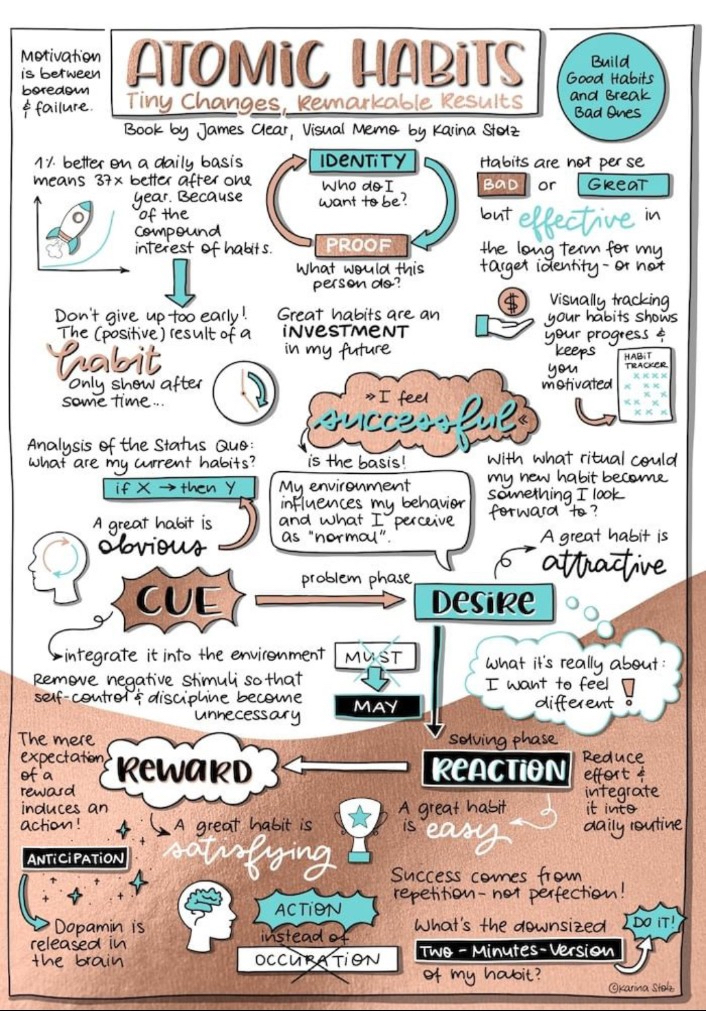 Motivation
is between
boredom
& failure.
ATOMIC HABITS
Tiny Changes, Remarkable Results
Build
Good Habits
and Break
Bad Ones
Book by James Clear, Visual Memo by Karina Stolz
1% better on a daily basis
means 37x better after one
year. Because
of the
compound
interest of habits.
IDENTITY
Who do I
want to be?
PROOF
What would this
person do?
Habits are not per se
BAD or GREAT
but effective in
the long term for my
target identity - or not
Don't give up too early!
The (positive) result of a
habit
Only show after
some time...
Great habits are an
INVESTMENT
in my future
$
Visually tracking
your habits shows
your progress &
keeps
you
motivated
HABIT
TRACKER
x x x x
x x x
x x
x x x
»I feel
successful«
is the basis!
Analysis of the Status Quo:
What are my current habits?
if X → then Y
A great habit is
obvious
My environment
influences my behavior
and what I perceive
as "normal".
With what ritual could
my new habit become
something I look
forward to?
A great habit is
attractive
CUE
problem phase
DESIRE
integrate it into the environment
Remove negative stimuli so that
self-control & discipline become
unnecessary
MUST
MAY
What it's really about:
I want to feel
different !
The mere
expectation
of a
reward
induces an
action!
REWARD
solving phase
REACTION
Reduce
effort &
integrate
it into
daily routine
A great habit is
satisfying
A great habit
is easy
ANTICIPATION
Dopamin is
released in
the brain
ACTION
instead of
OCCUPATION
Success comes from
repetition - not perfection!
What's the downsized
Two - Minutes - Version
of my habit?
DO IT!
©Karina Stolz